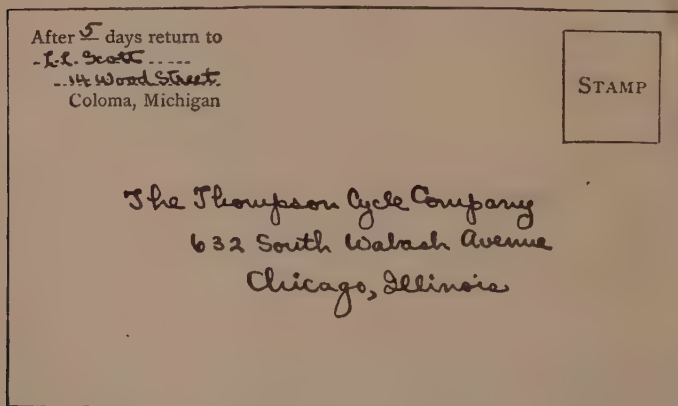 After 5 days return to
L.L. Scott
14 Wood Street
Coloma, Michigan
STAMP
The Thompson Cycle Company
632 South Wabash Avenue
Chicago, Illinois